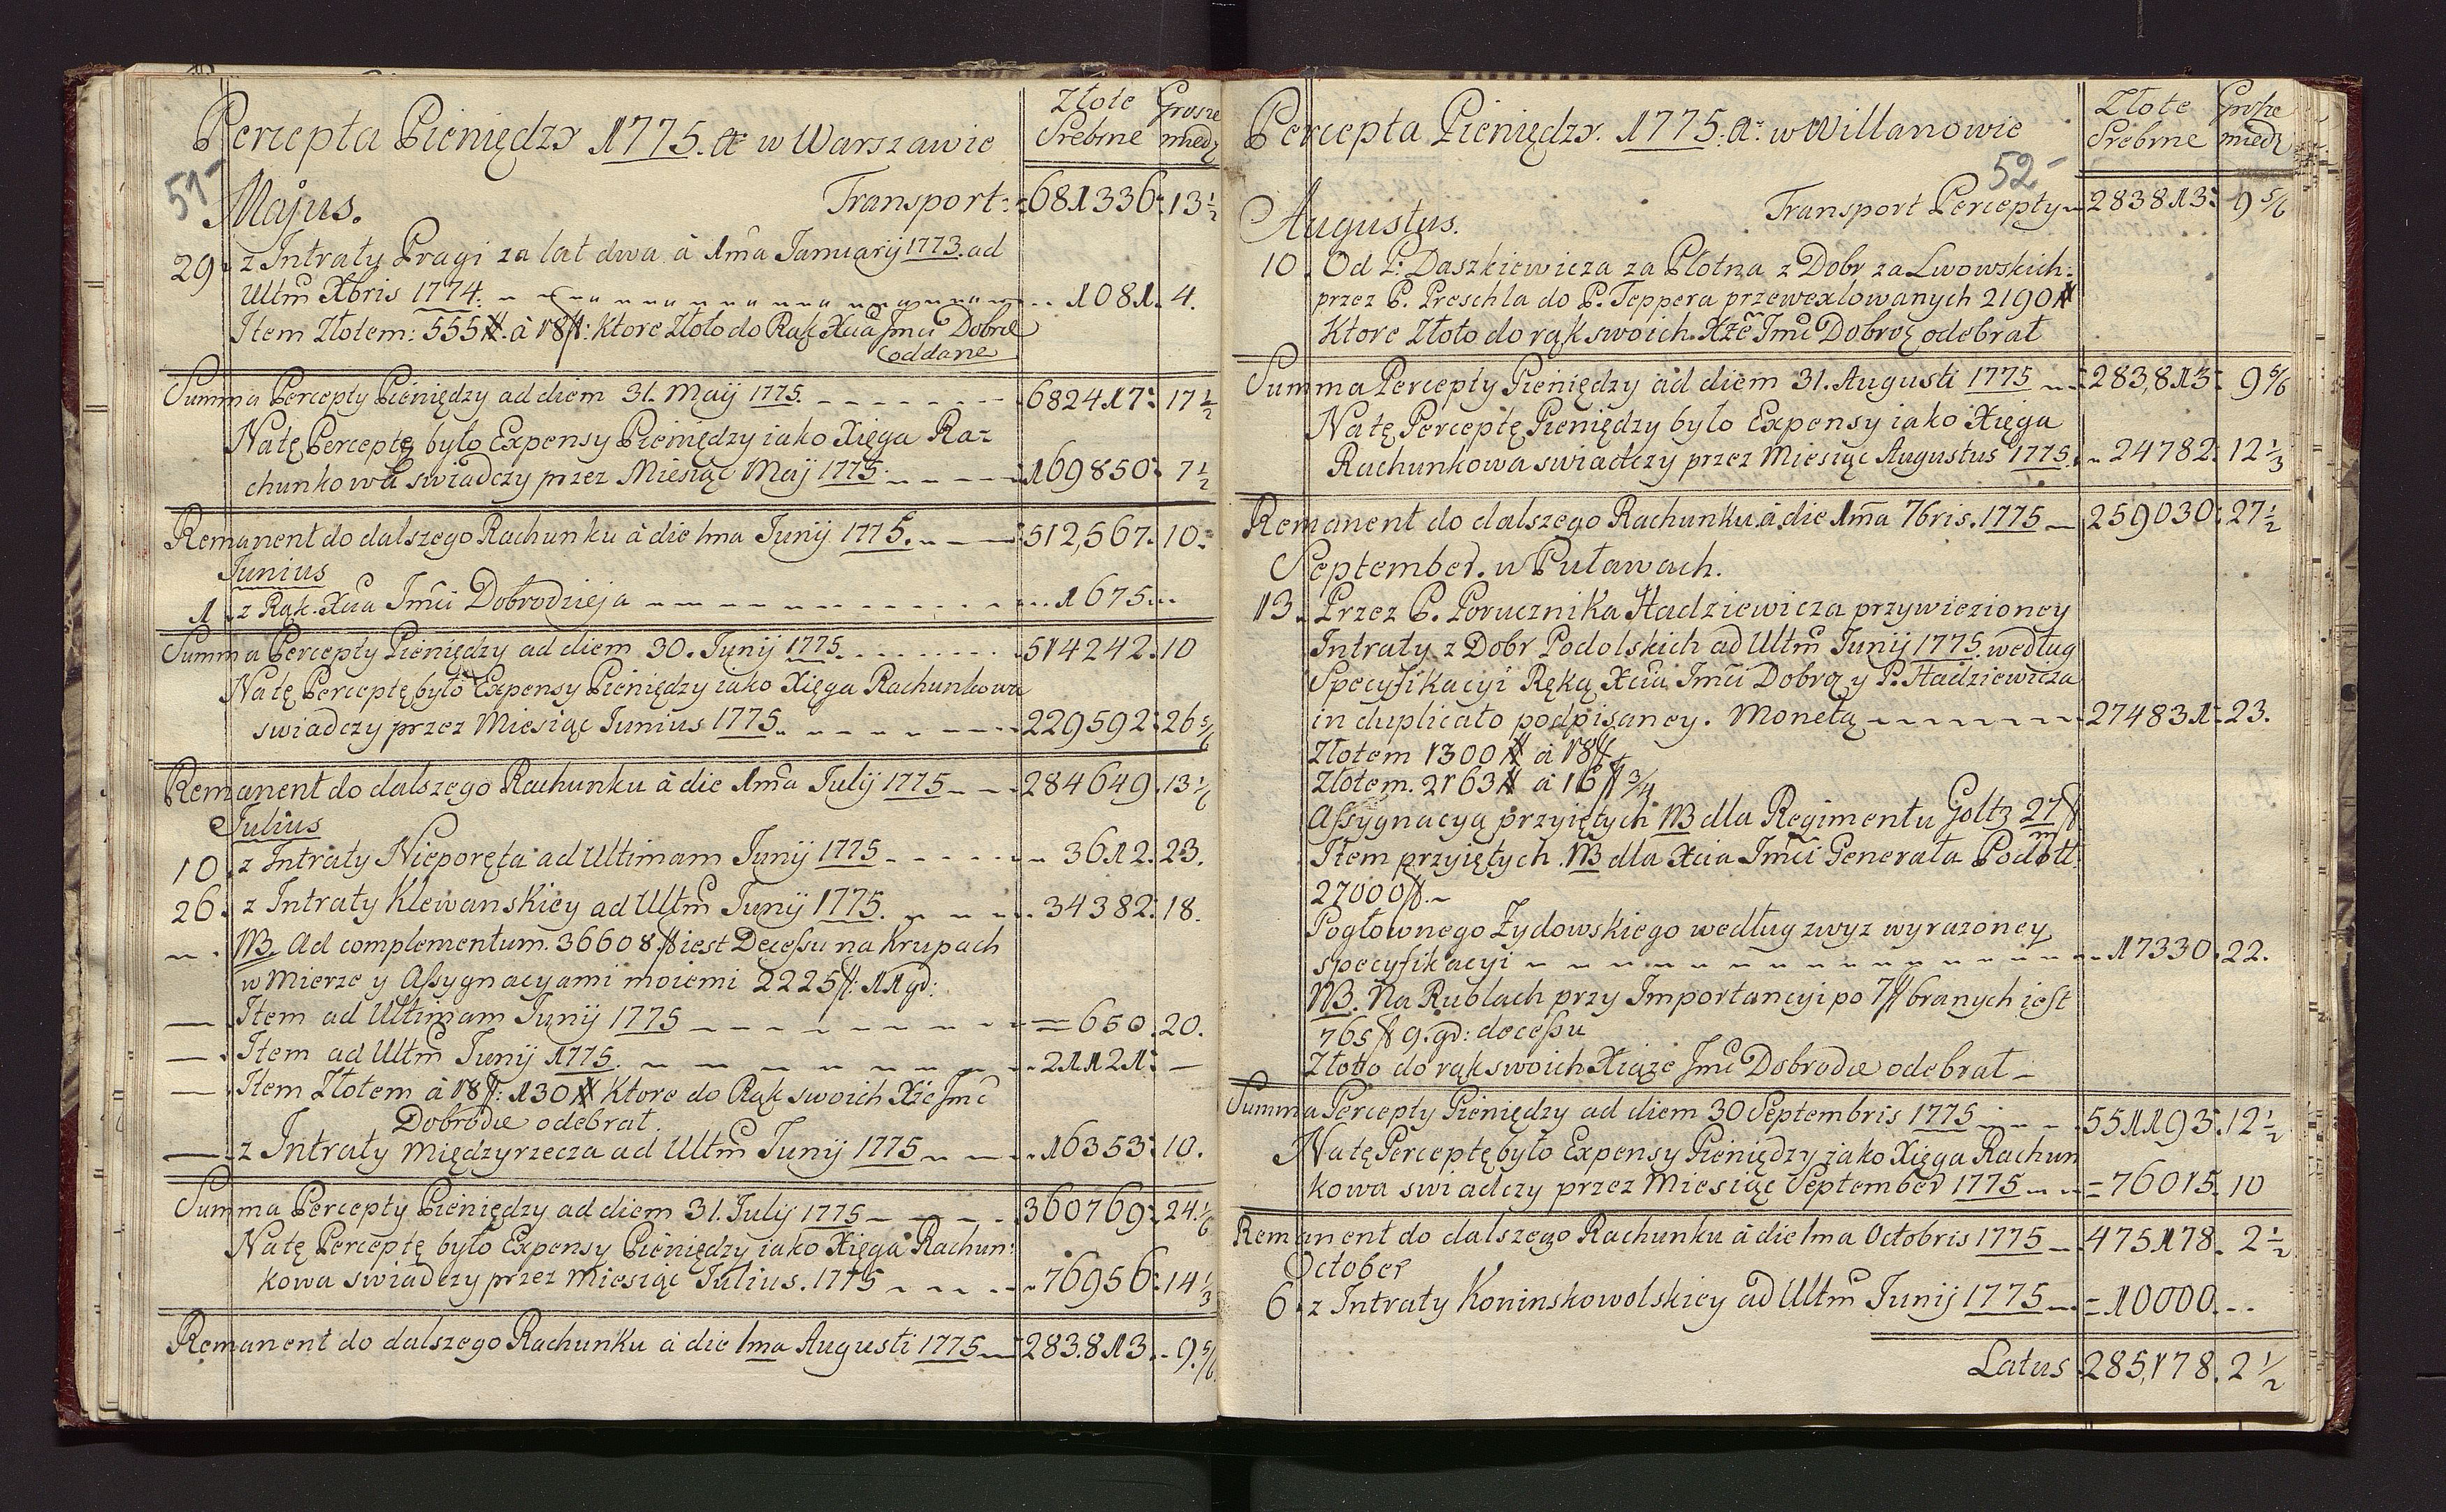 Percepta Pieniędzy 1775. aº w Warszawie
Złote Srebrne
Grosze miedz
51-
Majus.
Transport: 681336: 13 1/2
29. z Intraty Pragi za lat dwa â 1ma Januarij 1773. ad
Ultm̃ Xbris 1774. 1081. 4.
Item Złotem: 555 ## â 18 ƒ: ktore Złoto do Rąk Xcia Jmci Dobrd
oddane
Summa Percepty Pieniędzy ad diem 31. Maij 1775. 682417: 17 1/2
Natę Perceptę było Expensy Pieniędzy iako Xięga Ra-
chunkowa swiadczy przez Miesiąc Maij 1775. 169850: 7 1/2
Remanent do dalszego Rachunku â die 1ma Junij 1775. 512,567. 10.
Junius
1. z Rąk. Xcia Jmci Dobrodzieja 1675.
Summa Percepty Pieniędzy ad diem 30. Junij 1775. 514242. 10
Natę Perceptę było Expensy Pieniędzy iako Xięga Rachunkowa
swiadczy przez Miesiąc Junius 1775. 229592: 26 5/6
Remanent do dalszego Rachunku â die 1ma Julij 1775 284649. 13 1/6
Julius
10. z Intraty Nieporęta ad Ultimam Junij 1775 3612. 23.
26. z Intraty Klewanskiey ad Ultm̃ Junij 1775. 34382: 18.
NB. Ad complementum. 36608 ƒ iest Decessu na Krupach
w Mierze y Assygnacyami moiemi 2225 ƒ: 11 gr:
Item ad Ultimam Junij 1775 650. 20.
Item ad Ultm̃ Junij 1775. 21121: —
Item Złotem â 18 ƒ: 130 ## Ktore do Rąk swoich Xże Jmć
Dobrodze odebrał.
z Intraty Międzyrzecza ad Ultm̃ Junij 1775 16353: 10.
Summa Percepty Pieniędzy ad diem 31. Julij 1775 360769: 24. 1/6
Natę Perceptę było Expensy Pieniędzy iako Xięga Rachun:
kowa swiadczy przez Miesiąc Julius. 1775 76956: 14 1/3
Remanent do dalszego Rachunku â die 1ma Augusti 1775 283.813. 9. 5/6
Percepta Pieniędzy. 1775. aº: w Willanowie
Złote Srebrne
Grosze miedz
52-
Augustus.
Transport Percepty 283813: 9 5/6
10. Od P: Daszkiewicza za Płotna z Dobr za Lwowskich.
przez P. Preschla do P. Teppera przewexlowanych 2190 ##
Ktore Złoto do rąk swoich. Xże Jmć Dobrodz odebrał
Summa Percepty Pieniędzy ad diem 31. Augusti 1775 283,813: 9 5/6
Natę Perceptę Pieniędzy było Expensy iako Xięga
Rachunkowa swiadczy przez Miesiąc Augustus 1775. 24782: 12 1/3
Remanent do dalszego Rachunku â die 1ma 7bris. 1775 259030: 27 1/2
September. w Puławach.
13. Przez P. Porucznika Hadziewicza przywiezioney
Intraty z Dobr Podolskich ad Ultm̃ Junij 1775. według
Specyfikacyi Ręką Xcia Jmci Dobrą y P. Hadziewicza
in duplicato podpisaney. Monetą 274831: 23.
Złotem 1300 ## â 18 ƒ
Złotem. 2163 ## â 16 ƒ 3/4
Assygnacyą przyiętych NB dla Regimentu Goltz 27m ƒ
Item przyiętych. NB dla Xcia Jmci Generała Podoll:
27000 ƒ.
Pogłownego Żydowskiego według zwyz wyrazoney
specyfikacyi 17330. 22.
NB. Na Rublach przy Importancyi po 7 ƒ branych iest
765 ƒ 9. gr: decessu
Złotto do rąk swoich Xiąze Jmć Dobrodze odebrał
Summa Percepty Pieniędzy ad diem 30 Septembris 1775 551193. 12 1/2
Natę Perceptę było Expensy Pieniędzy iako Xięga Rachun
kowa swiadczy przez Miesiąc September 1775 76015. 10
Remanent do dalszego Rachunku â die 1ma Octobris 1775 475178. 2 1/2
October
6. z Intraty Koninskowolskiey ad Ultm̃ Junij 1775 10000.
Latus 285,178. 2 1/2